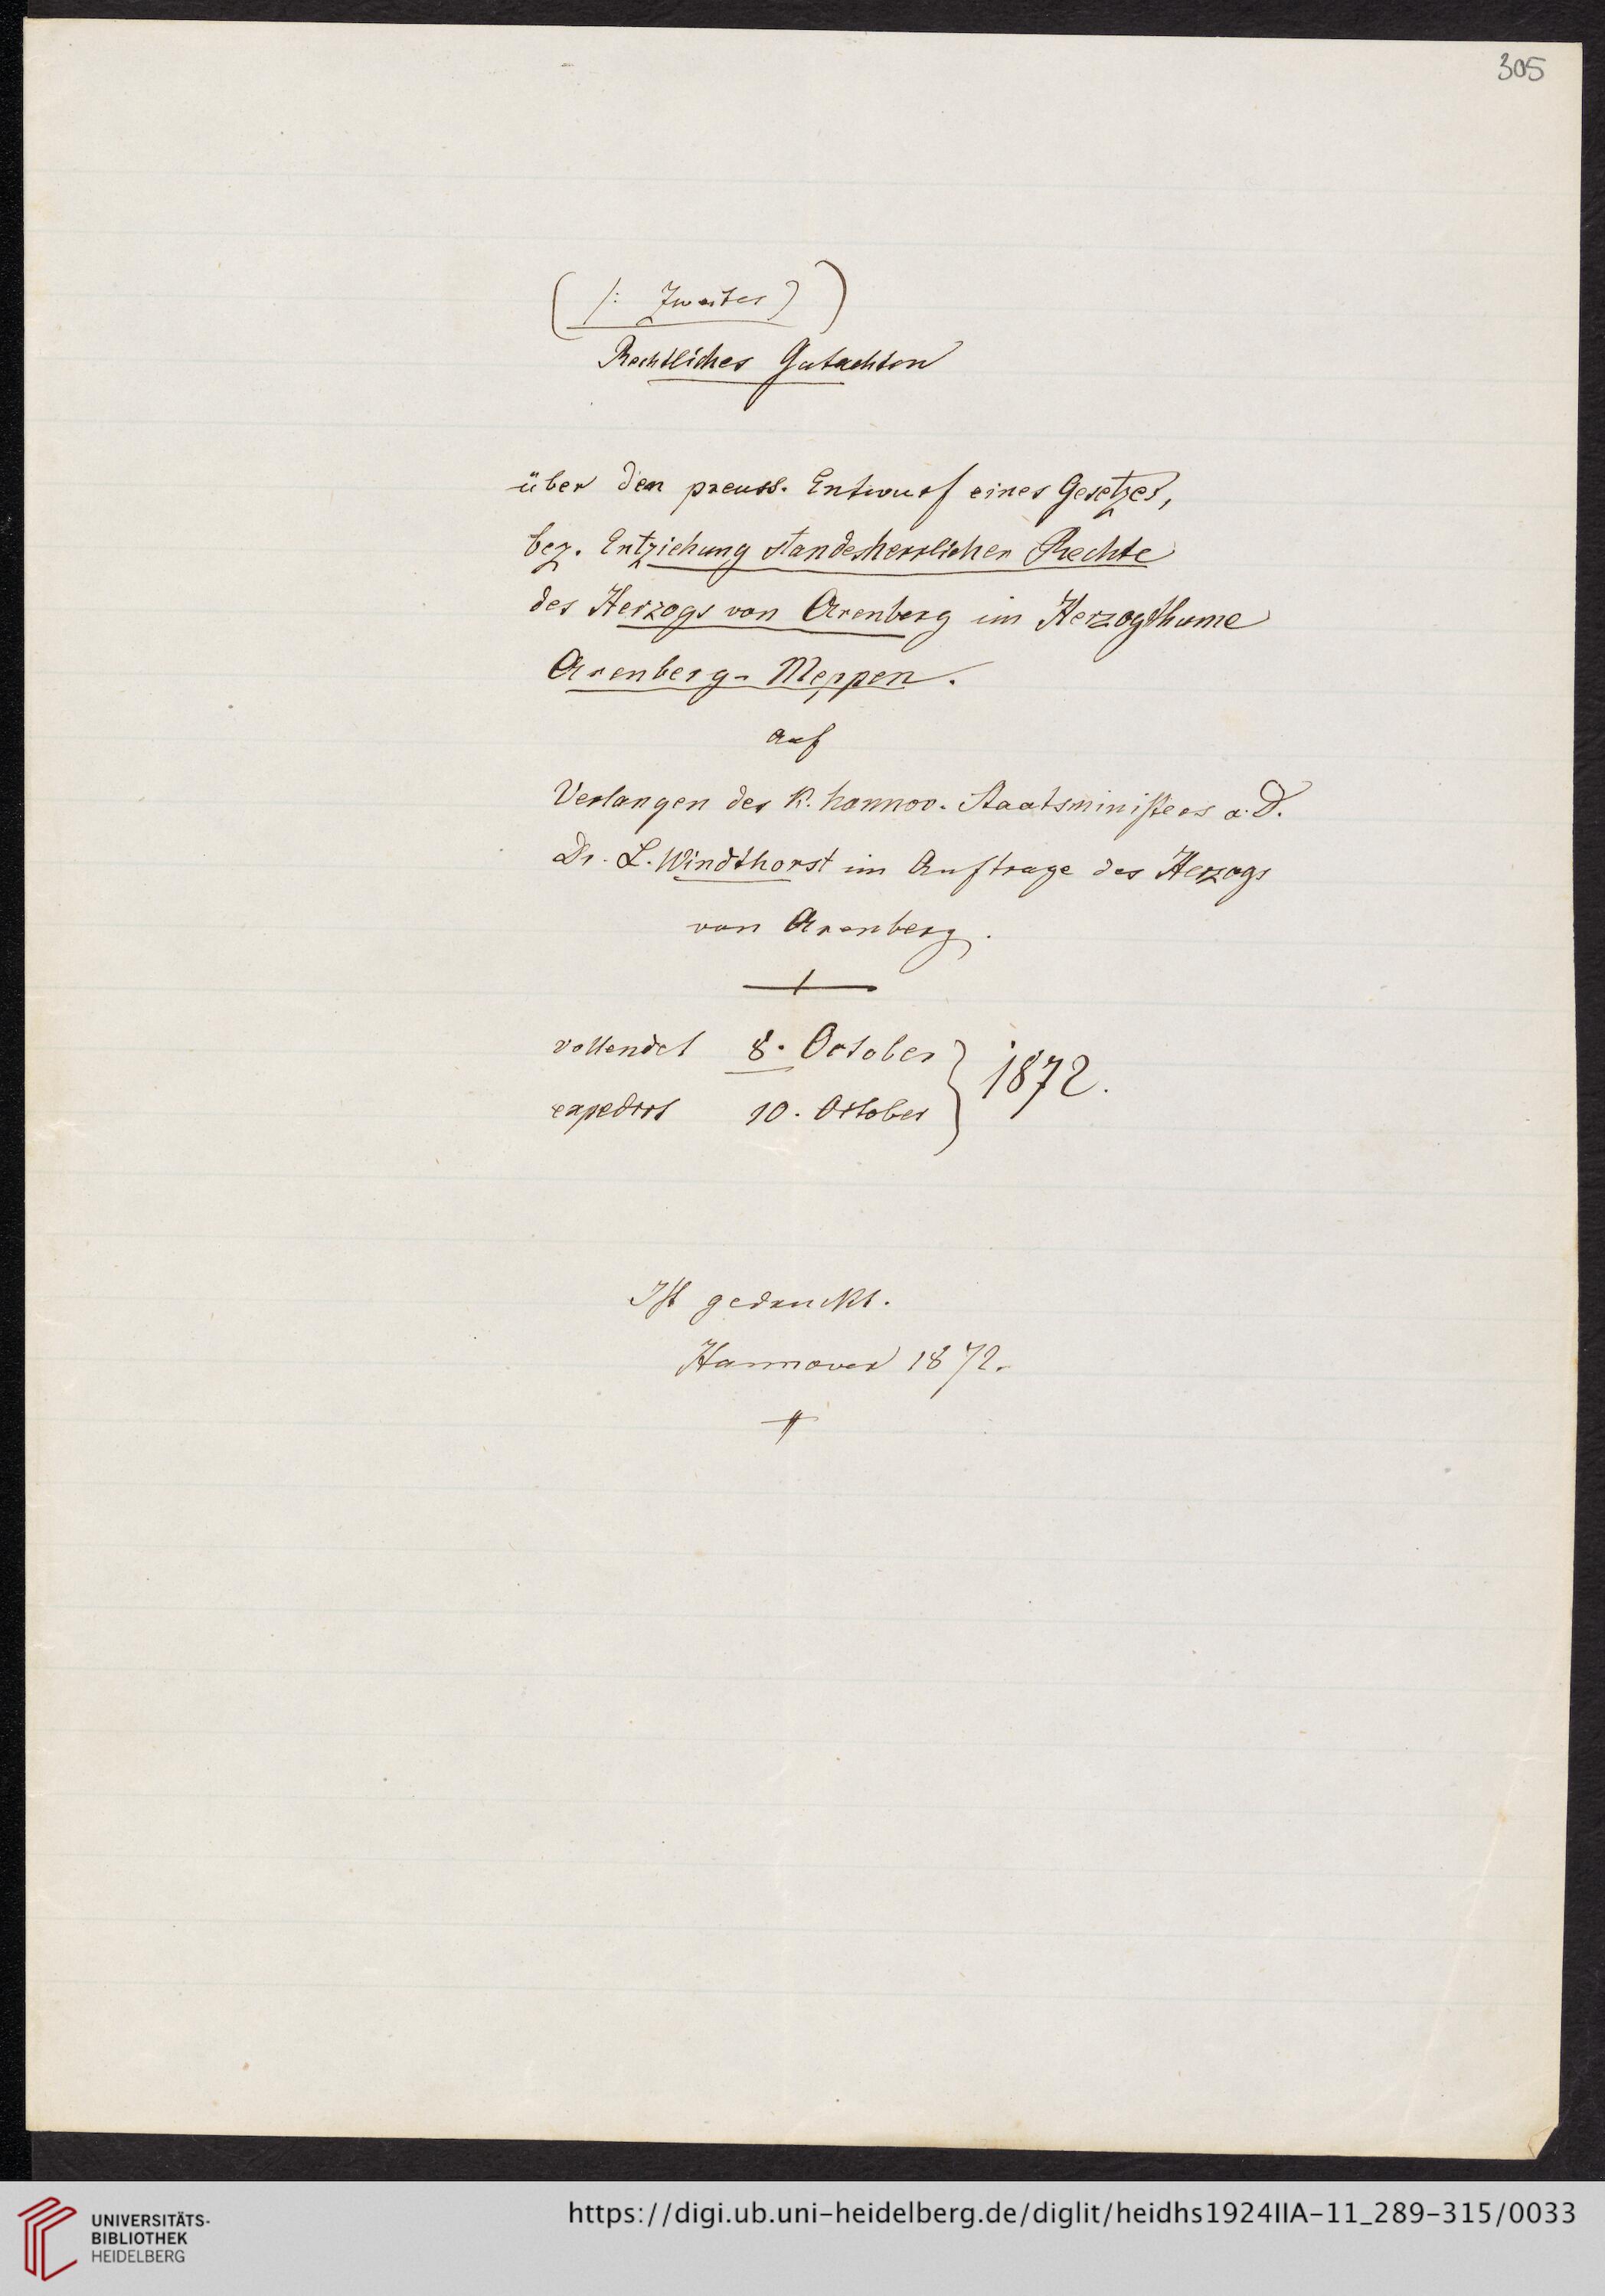 305
(/: Zweites))
Rechtliches Gutachten
über den preuss. Entwurf eines Gesetzes,
bez. Entziehung standesherrlicher Rechte
des Herzogs von Arenberg im Herzogthume
Arenberg-Meppen.
auf
Verlangen des K. hannov. Staatsministers a. D.
Dr. L. Windthorst im Auftrage des Herzogs
von Arenberg.
vollendet 8. October } 1872.
expedirt 10. October
Ist gedruckt.
Hannover 1872.
UNIVERSITÄTS-
BIBLIOTHEK
HEIDELBERG
https://digi.ub.uni-heidelberg.de/diglit/heidhs1924IIA-11_289-315/0033